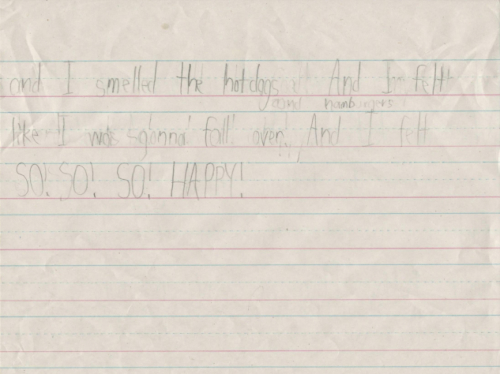 and I smelled the hotdogs And I felt
and hamburgers
like I was gonna' fall over. And I felt
SO! SO! SO! HAPPY!